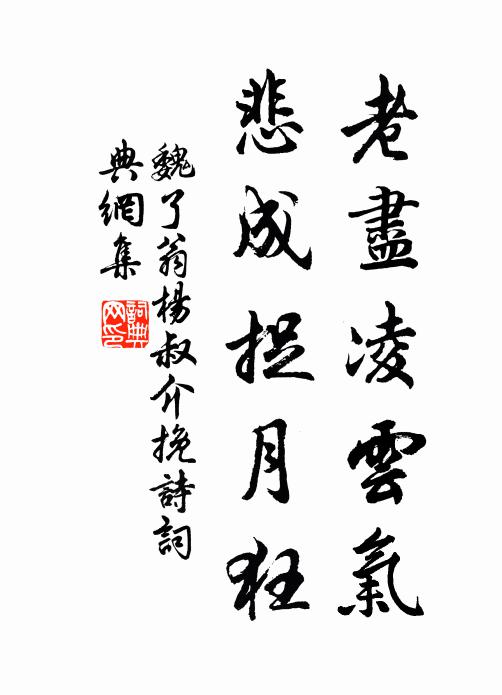 老盡凌雲氣
悲成捉月狂
魏了翁楊叔介挽詩詞
典網集
詞典網印